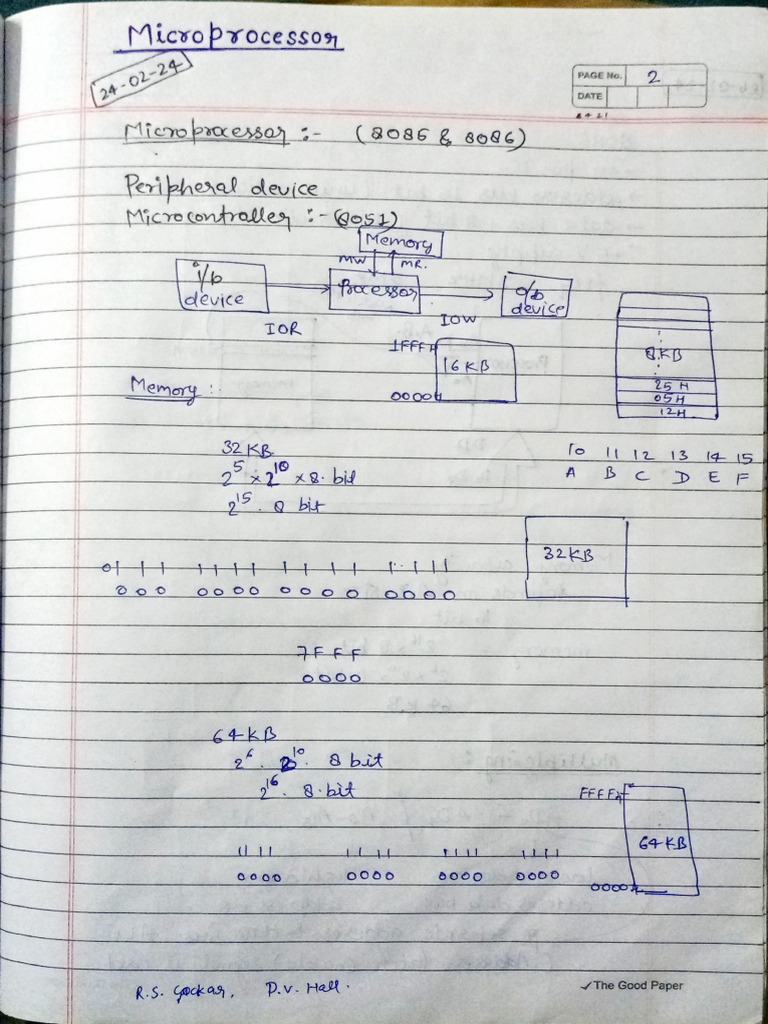 Microprocessor
24-02-24
PAGE No. 2
DATE
Microprocessor :- (8085 & 8086)
Peripheral device
Microcontroller :- (8051)
Memory
MW MR.
i/p device
Processor
o/p device
IOR
IOW
1FFFH
16KB
0000H
8KB
25H
05H
12H
Memory :-
32KB
2^5 x 2^10 x 8. bit
2^15 . 8 bit
10 11 12 13 14 15
A B C D E F
32KB
0111 1111 1111 1111
000 0000 0000 0000
7FFF
0000
64KB
2^6 . 2^10 . 8 bit
2^16 . 8. bit
FFFFH
64KB
0000H
1111 1111 1111 1111
0000 0000 0000 0000
R.S. P.V. Hall.
The Good Paper